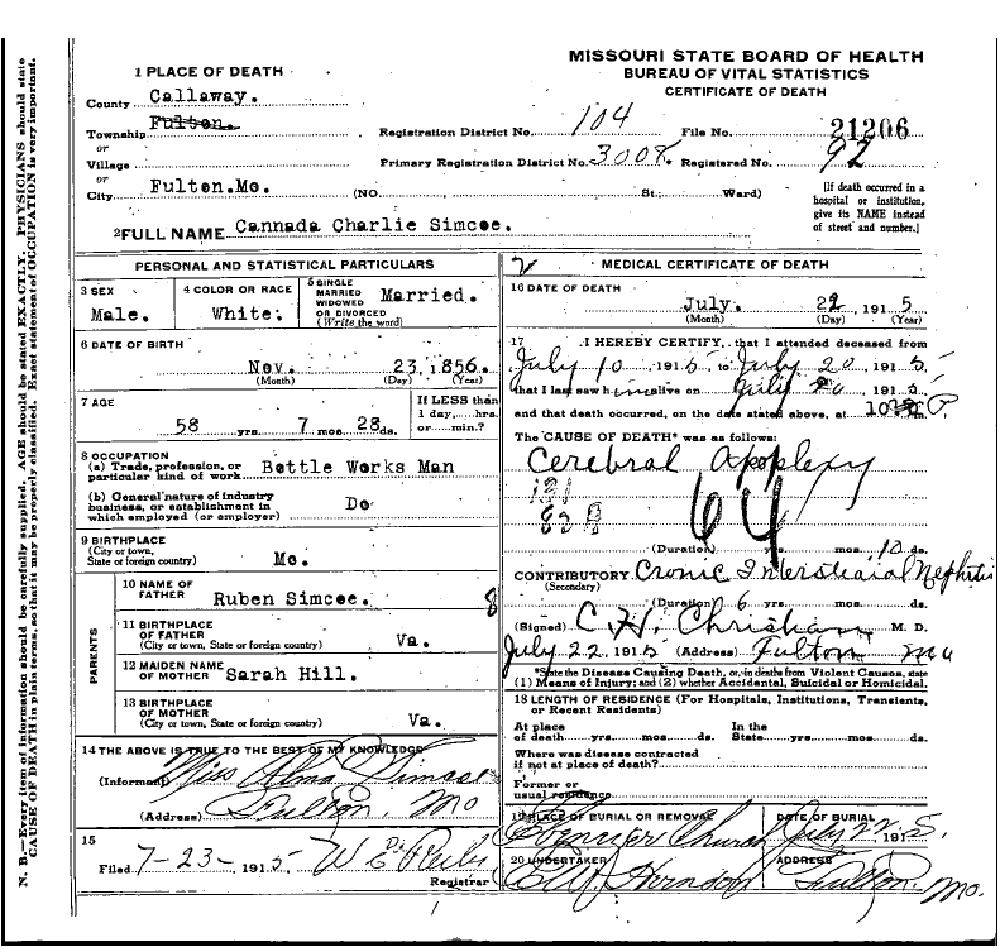 MISSOURI STATE BOARD OF HEALTH
BUREAU OF VITAL STATISTICS
CERTIFICATE OF DEATH
1 PLACE OF DEATH
County Callaway.
Township Fulton.
or
Village
or
City Fulton.Mo. (NO. St. Ward)
Registration District No. 104 File No. 21206
Primary Registration District No. 3008 Registered No. 92
[If death occurred in a
hospital or institution,
give its NAME instead
of street and number.]
2 FULL NAME Cannada Charlie Simcoe.
PERSONAL AND STATISTICAL PARTICULARS
3 SEX
Male.
4 COLOR OR RACE
White.
5 SINGLE
MARRIED
WIDOWED
OR DIVORCED
(Write the word)
Married.
6 DATE OF BIRTH
Nov. 23, 1856.
(Month) (Day) (Year)
7 AGE
58 yrs. 7 mos. 28 ds.
If LESS than
1 day, hrs.
or min.?
8 OCCUPATION
(a) Trade, profession, or
particular kind of work Bottle Works Man
(b) General nature of industry
business, or establishment in
which employed (or employer) Do
9 BIRTHPLACE
(City or town,
State or foreign country) Mo.
PARENTS
10 NAME OF
FATHER Ruben Simcoe. 8
11 BIRTHPLACE
OF FATHER
(City or town, State or foreign country) Va.
12 MAIDEN NAME
OF MOTHER Sarah Hill.
13 BIRTHPLACE
OF MOTHER
(City or town, State or foreign country) Va.
14 THE ABOVE IS TRUE TO THE BEST OF MY KNOWLEDGE
(Informant) Miss Alma Simcoe
(Address) Fulton, Mo
15
Filed 7-23- 1915
Registrar
MEDICAL CERTIFICATE OF DEATH
16 DATE OF DEATH
July. , 1915
(Month) (Day) (Year)
17 I HEREBY CERTIFY, that I attended deceased from
July 10 1915, to July 20, 1915.
that I last saw him alive on July 20 1915.
and that death occurred, on the date stated above, at 10 P m.
The CAUSE OF DEATH* was as follows:
Cerebral Apoplexy
131
82 B
64
(Duration) yrs. mos. 10 ds.
CONTRIBUTORY Cronic Interstiaial Nephritis
(Secondary)
(Duration) 6 yrs. mos. ds.
(Signed) C. H. Christian M. D.
July 22, 1915 (Address) Fulton Mo
*State the Disease Causing Death, or, in deaths from Violent Causes, state
(1) Means of Injury; and (2) whether Accidental, Suicidal or Homicidal.
18 LENGTH OF RESIDENCE (For Hospitals, Institutions, Transients,
or Recent Residents)
At place
of death yrs. mos. ds.
In the
State yrs. mos. ds.
Where was disease contracted
if not at place of death?
Former or
usual residence
19 PLACE OF BURIAL OR REMOVAL
Ebenezer Church
DATE OF BURIAL
July 22 1915.
20 UNDERTAKER
Herndon
ADDRESS
Fulton. Mo.
N. B.—Every item of information should be carefully supplied. AGE should be stated EXACTLY. PHYSICIANS should state
CAUSE OF DEATH in plain terms, so that it may be properly classified. Exact statement of OCCUPATION is very important.